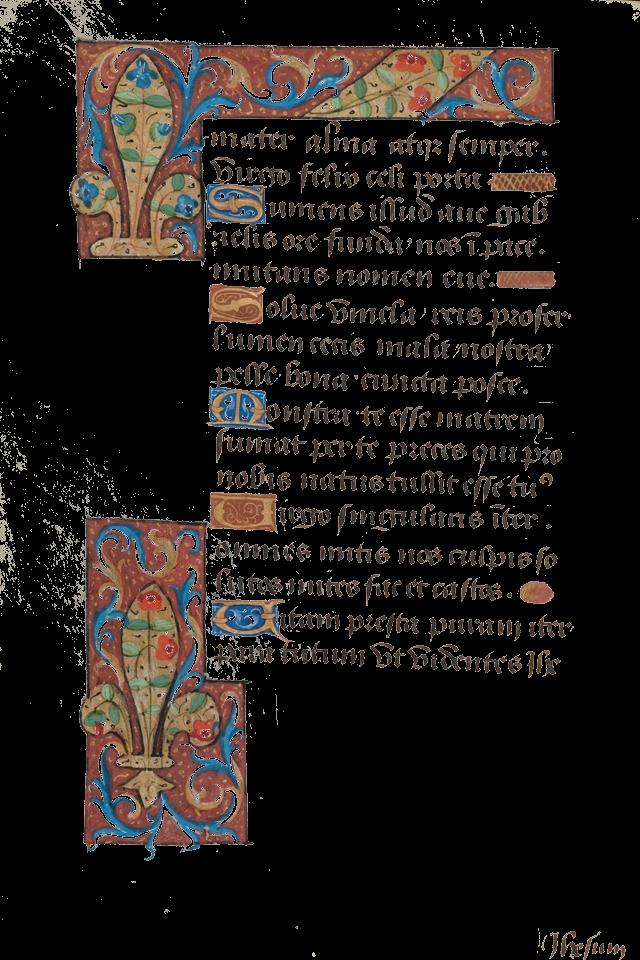 mater alma atqz semper.
Virgo felix celi porta
Sumens illud aue gab
rielis ore funda nos ī pace.
mutans nomen eue.
Solue vincla reis profer
lumen cecis mala nostra
pelle bona cuncta posce.
Monstra te esse matrem
sumat per te preces qui pro
nobis natus tullit esse tuꝰ
Uirgo singularis īter
omnes mitis nos culpis so
lutos mites fac et castos.
Uitam presta puram iter
para tutum Vt videntes Ihe
Ihesum